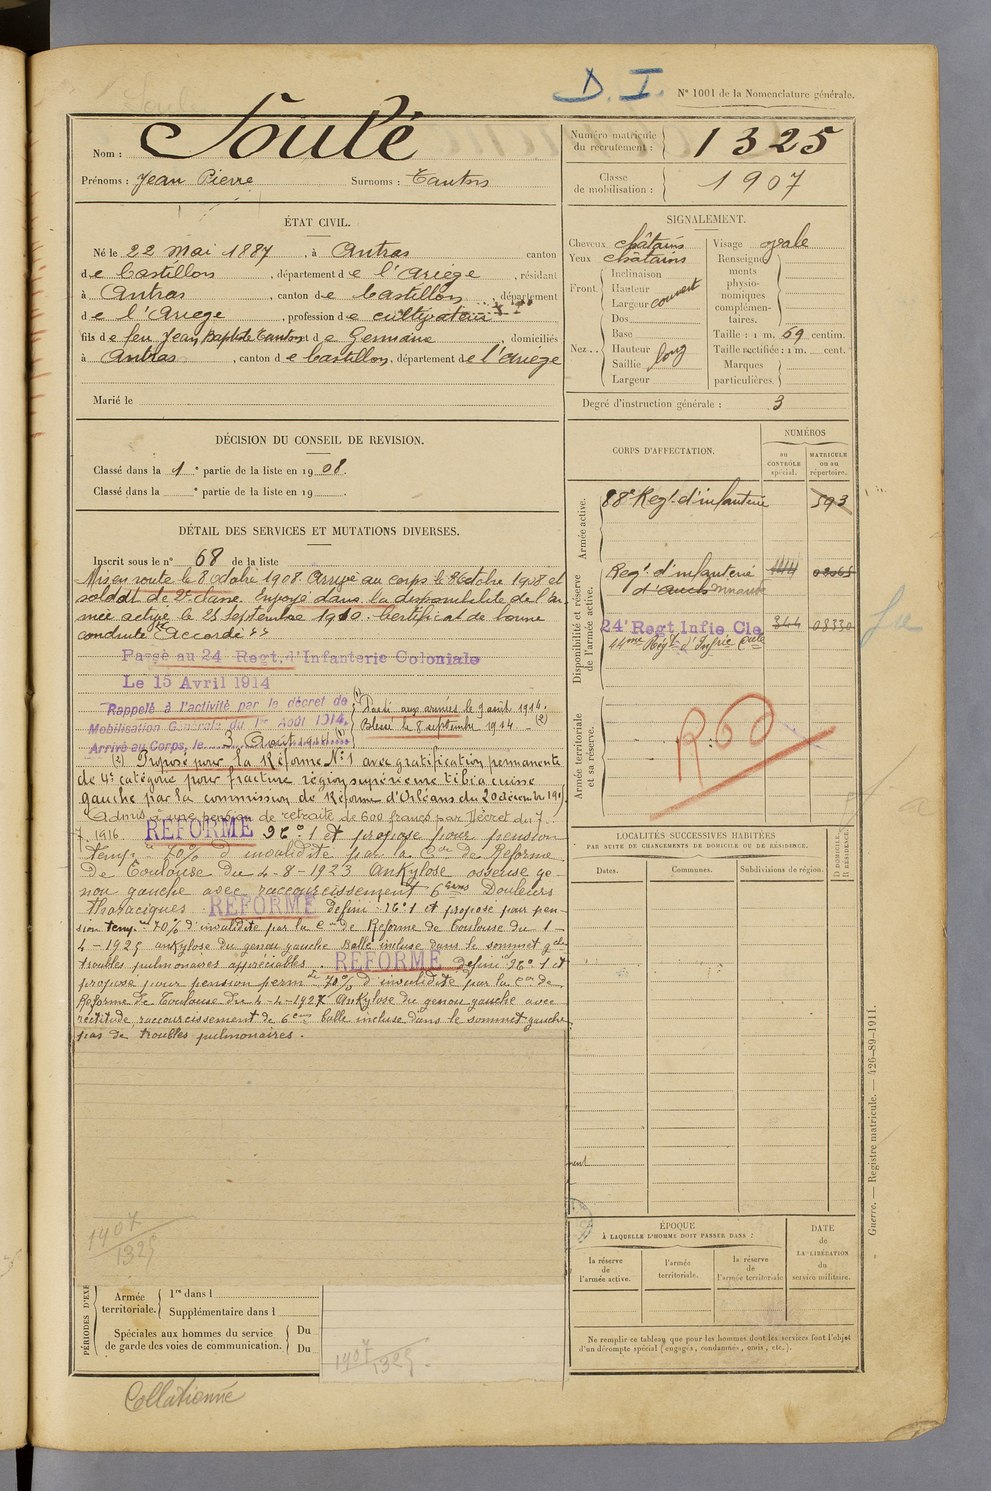 D. I.
N° 1001 de la Nomenclature générale.
Nom : Soulé
Prénoms : Jean Pierre Surnoms : Tantos
Numéro matricule du recrutement : 1325
Classe de mobilisation : 1907
ÉTAT CIVIL.
Né le 22 Mai 1887, à Antras canton
de Castillon, département de l'Ariège, résidant
à Antras, canton de Castillon, département
de l'Ariège, profession de cultivateur
fils de feu Jean Baptiste Tantos et de Germaine, domiciliés
à Antras, canton de Castillon, département de l'Ariège
Marié le
SIGNALEMENT.
Cheveux châtains
Yeux châtains
Front. Inclinaison
Hauteur
Largeur couvert
Nez.. Dos
Base
Hauteur
Saillie long
Largeur
Visage ovale
Renseignements physionomiques complémentaires.
Taille : 1 m. 69 centim.
Taille rectifiée : 1 m. cent.
Marques particulières.
Degré d'instruction générale : 3
DÉCISION DU CONSEIL DE REVISION.
Classé dans la 1e partie de la liste en 1908.
Classé dans la e partie de la liste en 19 .
DÉTAIL DES SERVICES ET MUTATIONS DIVERSES.
Inscrit sous le n° 68 de la liste
Mis en route le 8 octobre 1908. Arrivé au corps le 8 octobre 1908 et
soldat de 2e classe. Envoyé dans la disponibilité de l'ar-
mée active le 25 septembre 1910. Certificat de bonne
conduite "Accordé"
Passé au 24 Regt. d'Infanterie Coloniale
Le 15 Avril 1914
Rappelé à l'activité par le décret de
Mobilisation Générale du 1er Août 1914.
Arrivé au Corps, le 3 Août 1914 (1)
(1) Parti aux armées le 9 août 1914.
Blessé le 8 septembre 1914 - (2)
(2) Proposé pour la Réforme N° 1 avec gratification permanente
de 4e catégorie pour fracture région supérieure tibia cuisse
gauche par la commission de Réformes d'Orléans du 20 décembre 191
Admis à une pension de retraite de 600 francs par Décret du 7
7. 1916. REFORMÉ N° 1 et proposé pour pension
temp. re 70% d'invalidité par la Con de Réforme
de Toulouse du 4-8-1923 Ankylose osseuse ge-
nou gauche avec raccourcissement 6 cms Douleurs
thoraciques. REFORMÉ défini. N° 1 et proposé pour pen-
sion temp. re 70% d'invalidité par la Con de Réforme de Toulouse du 1-
4-1925 ankylose du genou gauche Balle incluse dans le sommet gche
troubles pulmonaires appréciables. REFORMÉ défini N° 1 et
proposé pour pension perm te 70% d'invalidité par la Con de
Réforme de Toulouse du 4-4-1927 Ankylose du genou gauche avec
rectitude, raccourcissement de 6 cms balle incluse dans le sommet gauche
pas de troubles pulmonaires.
CORPS D'AFFECTATION.
NUMÉROS
au CONTRÔLE spécial.
MATRICULE ou au répertoire.
Armée active.
88e Regt. d'infanterie 593
Disponibilité et réserve de l'armée active.
Regt. d'infanterie
24e Regt Infie Cle 344 08330
44me Régt d'Infrie Cale
Armée territoriale et sa réserve.
LOCALITÉS SUCCESSIVES HABITÉES
PAR SUITE DE CHANGEMENTS DE DOMICILE OU DE RÉSIDENCE.
Dates.
Communes.
Subdivisions de région.
D DOMICILE.
R RÉSIDENCE.
ÉPOQUE
À LAQUELLE L'HOMME DOIT PASSER DANS :
la réserve de l'armée active.
l'armée territoriale.
la réserve de l'armée territoriale
DATE de LA LIBÉRATION du service militaire.
Ne remplir ce tableau que pour les hommes dont les services font l'objet
d'un décompte spécial (engagés, condamnés, omis, etc.).
1907
1325
PÉRIODES D'EXE
Armée territoriale. 1re dans l
Supplémentaire dans l
Spéciales aux hommes du service de garde des voies de communication. Du
Du
1907
1325
Collationné
Guerre. — Registre matricule. — 426-89-1911.